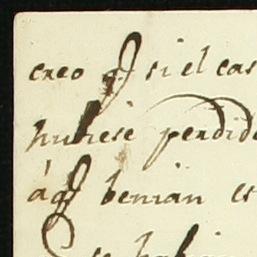 creo q si el cas
hubiese perdido
á q benian es
se habian